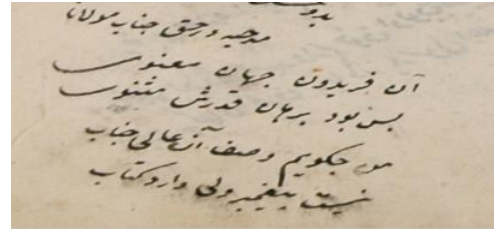 مدحیه در حق جناب مولانا
آن فریدون جهان معنوی
بس بود برهان قدرش مثنوی
من چگویم وصف آن عالی جناب
نیست پیغمبر ولی دارد کتاب